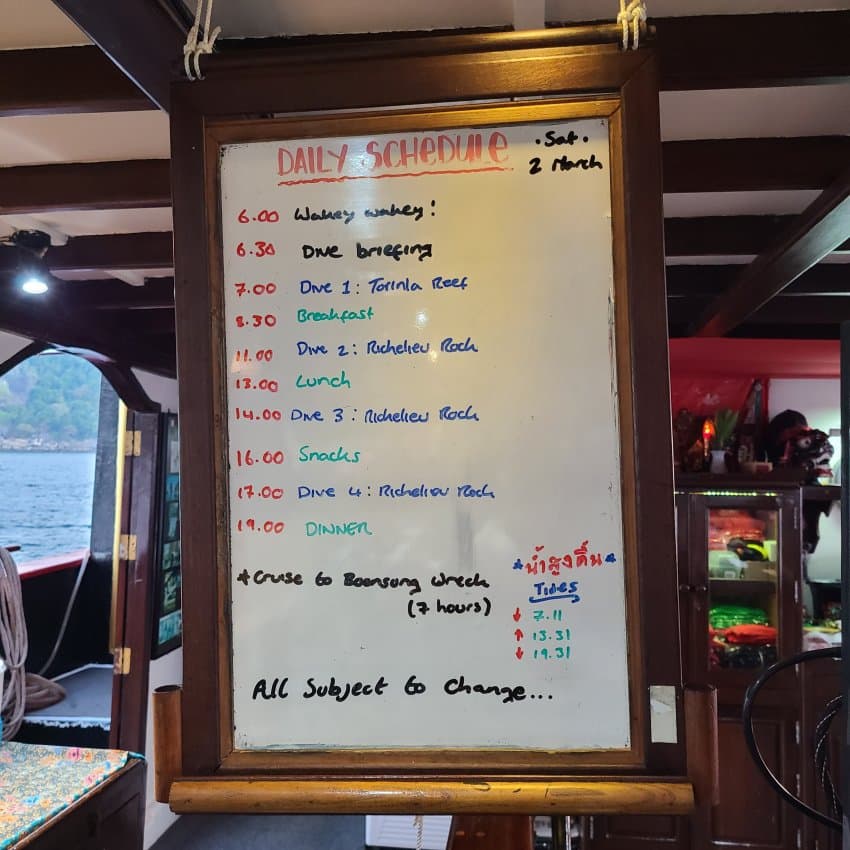 DAILY SCHEDULE
• Sat •
2 March
6.00 Wakey wakey!
6.30 Dive briefing
7.00 Dive 1: Torinla Reef
8.30 Breakfast
11.00 Dive 2: Richelieu Rock
13.00 Lunch
14.00 Dive 3: Richelieu Rock
16.00 Snacks
17.00 Dive 4: Richeliou Rock
19.00 DINNER
*Cruise to Boonsung Wreck
(7 hours)
*น้ำสูงขึ้น*
Tides
↓ 7.11
↑ 13.31
↓ 19.31
All Subject to Change...